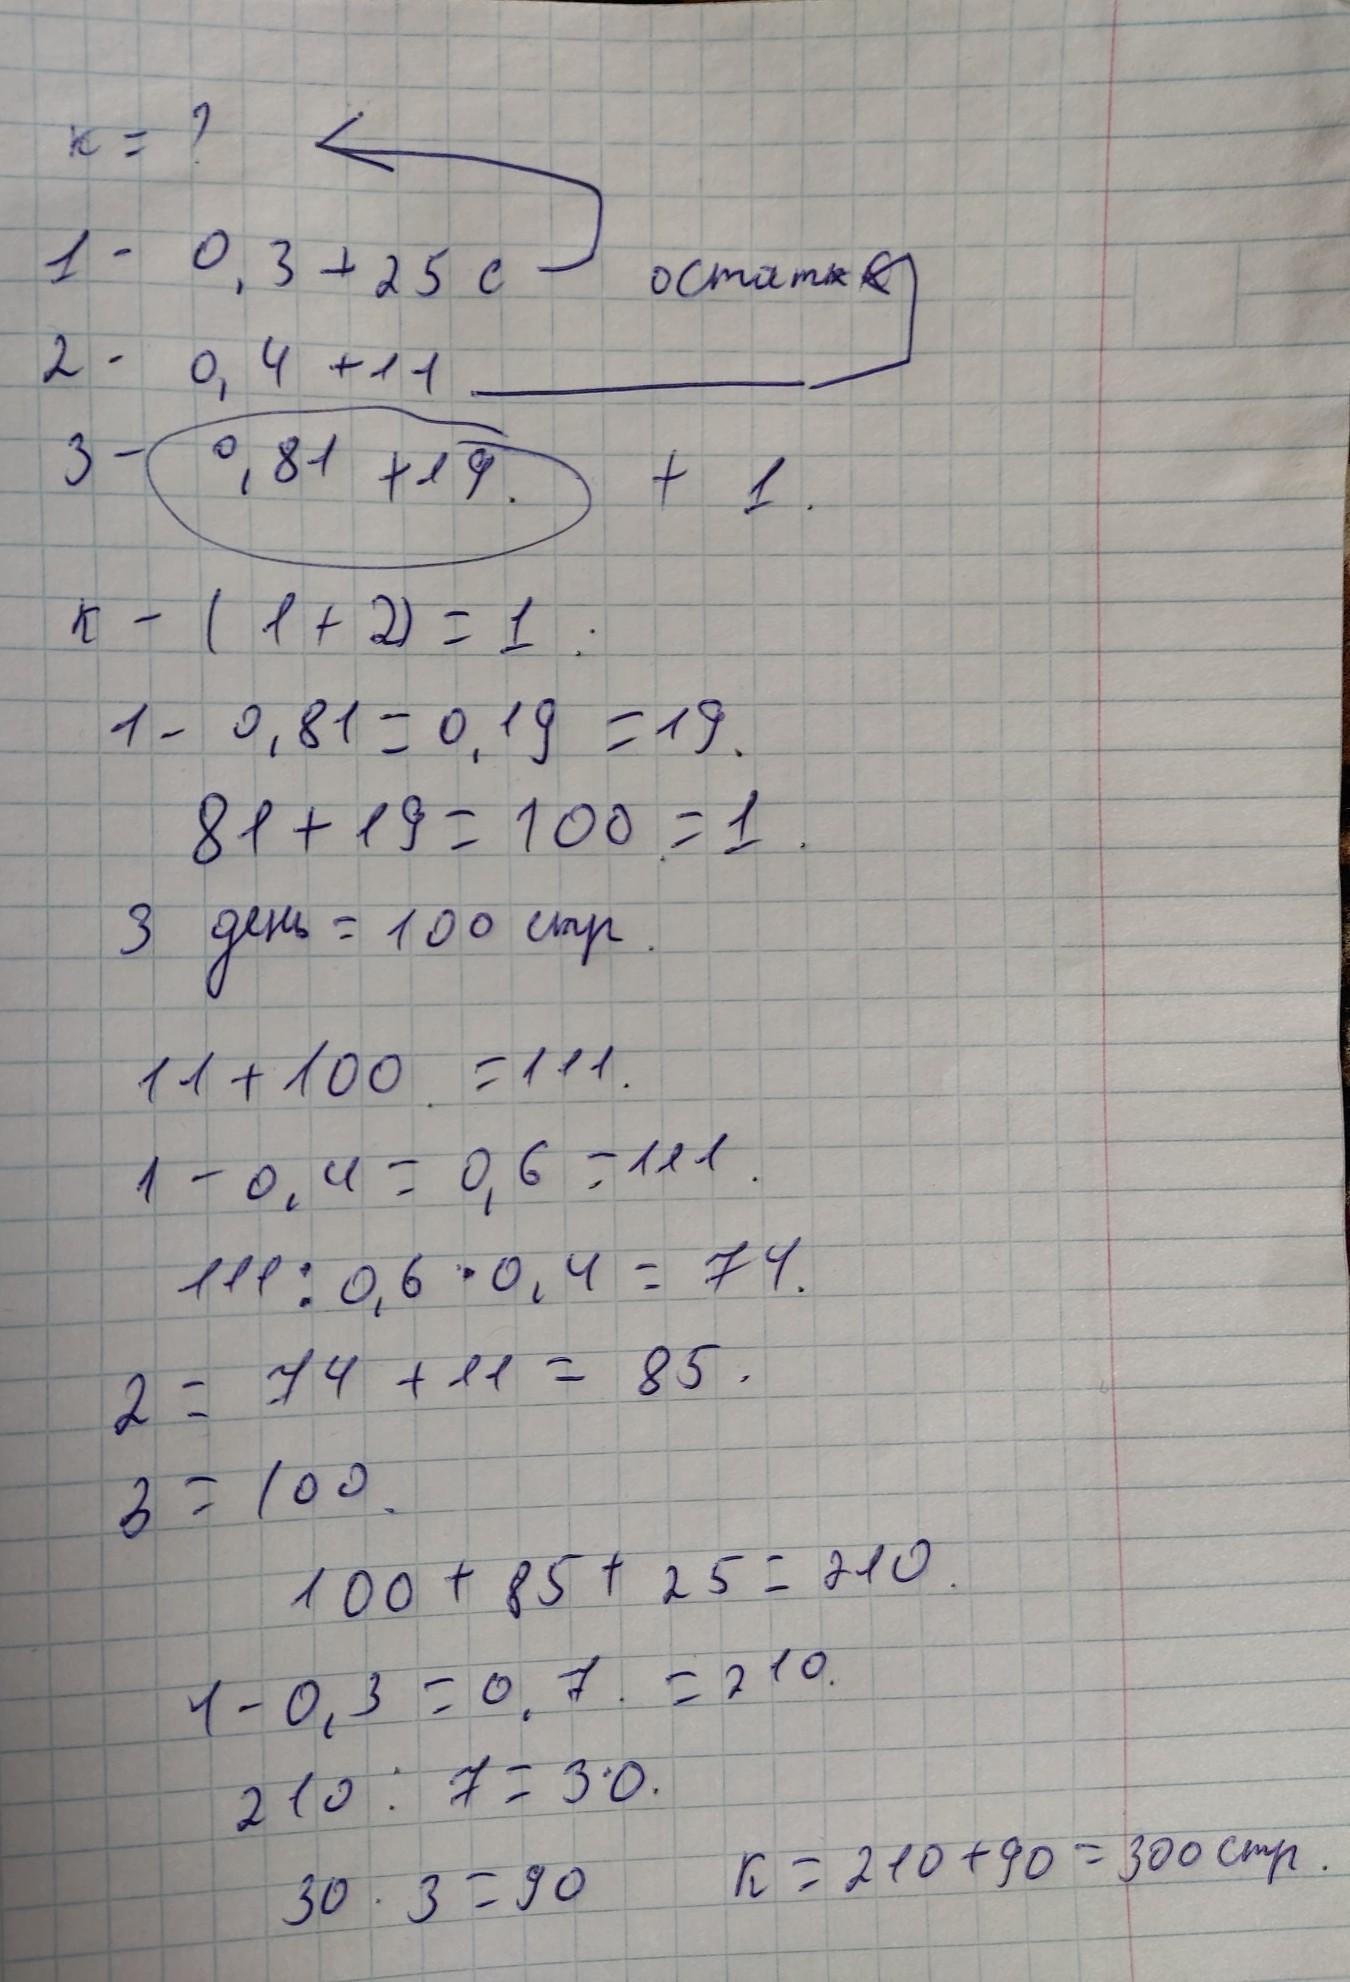 к = ?
1 - 0,3 + 25 с остатка
2 - 0,4 + 11
3 - 0,81 + 19. + 1.
к - (1 + 2) = 1.
1 - 0,81 = 0,19 = 19.
81 + 19 = 100 = 1.
3 день = 100 стр.
11 + 100 = 111.
1 - 0,4 = 0,6 = 111.
111 : 0,6 · 0,4 = 74.
2 = 74 + 11 = 85.
3 = 100.
100 + 85 + 25 = 210.
1 - 0,3 = 0,7. = 210.
210 : 7 = 30.
30 · 3 = 90 К = 210 + 90 = 300 стр.